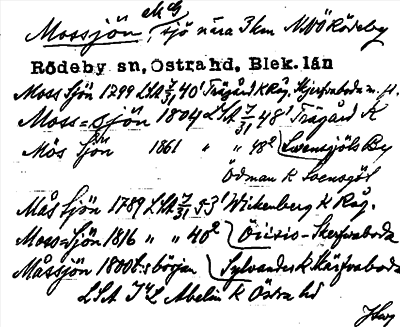 Mossjön, sjö nära 3 km NNÖ Rödeby
Rödeby sn, Östra hd, Blek. län
Moss Sjön 1799 LSA 7/31 40¹ Trägård K Råg. Skjerfvaboda m. fl.
Moss-sjön 1804 LSA 7/31 48¹ Trägård K
Mös Sjön 1861 " " 48² Svensjöls By
Ödman K Svensjöl
Mås Sjön 1789 LSA 7/31 53¹ Wickenberg K Råg.
Moss-Sjön 1816 " " 40² Skerfvaboda
Måssjön 1800t:s början Sylvander K Skärfvaboda
LSA Abelin K Östra hd